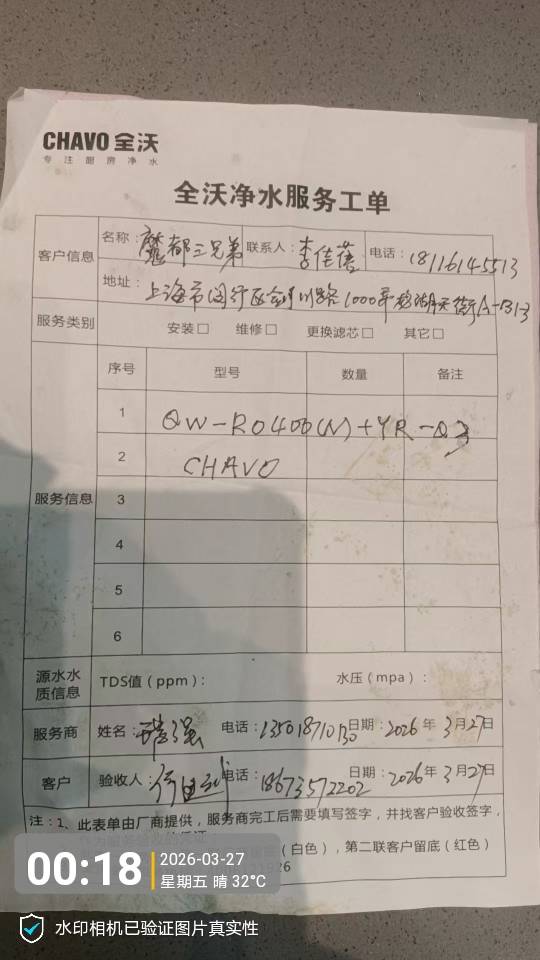 CHAVO 全沃
专注厨房净水
全沃净水服务工单
客户信息
名称：魔都三兄弟 联系人：李佳蓓 电话：18116145513
地址：上海市闵行区金 川路1000弄 湖天街A-B13
服务类别 安装□ 维修□ 更换滤芯□ 其它□
服务信息
序号 型号 数量 备注
1 QW-RO400(N)+YR-Q3
2 CHAVO
3
4
5
6
源水水质信息 TDS值（ppm）： 水压（mpa）：
服务商 姓名： 强 电话：13501871030 日期：2026年3月27日
客户 验收人： 电话：18673572202 日期：2026年3月27日
注：1、此表单由厂商提供，服务商完工后需要填写签字，并找客户验收签字，
（白色），第二联客户留底（红色）
1926
00:18
2026-03-27
星期五 晴 32℃
水印相机已验证图片真实性